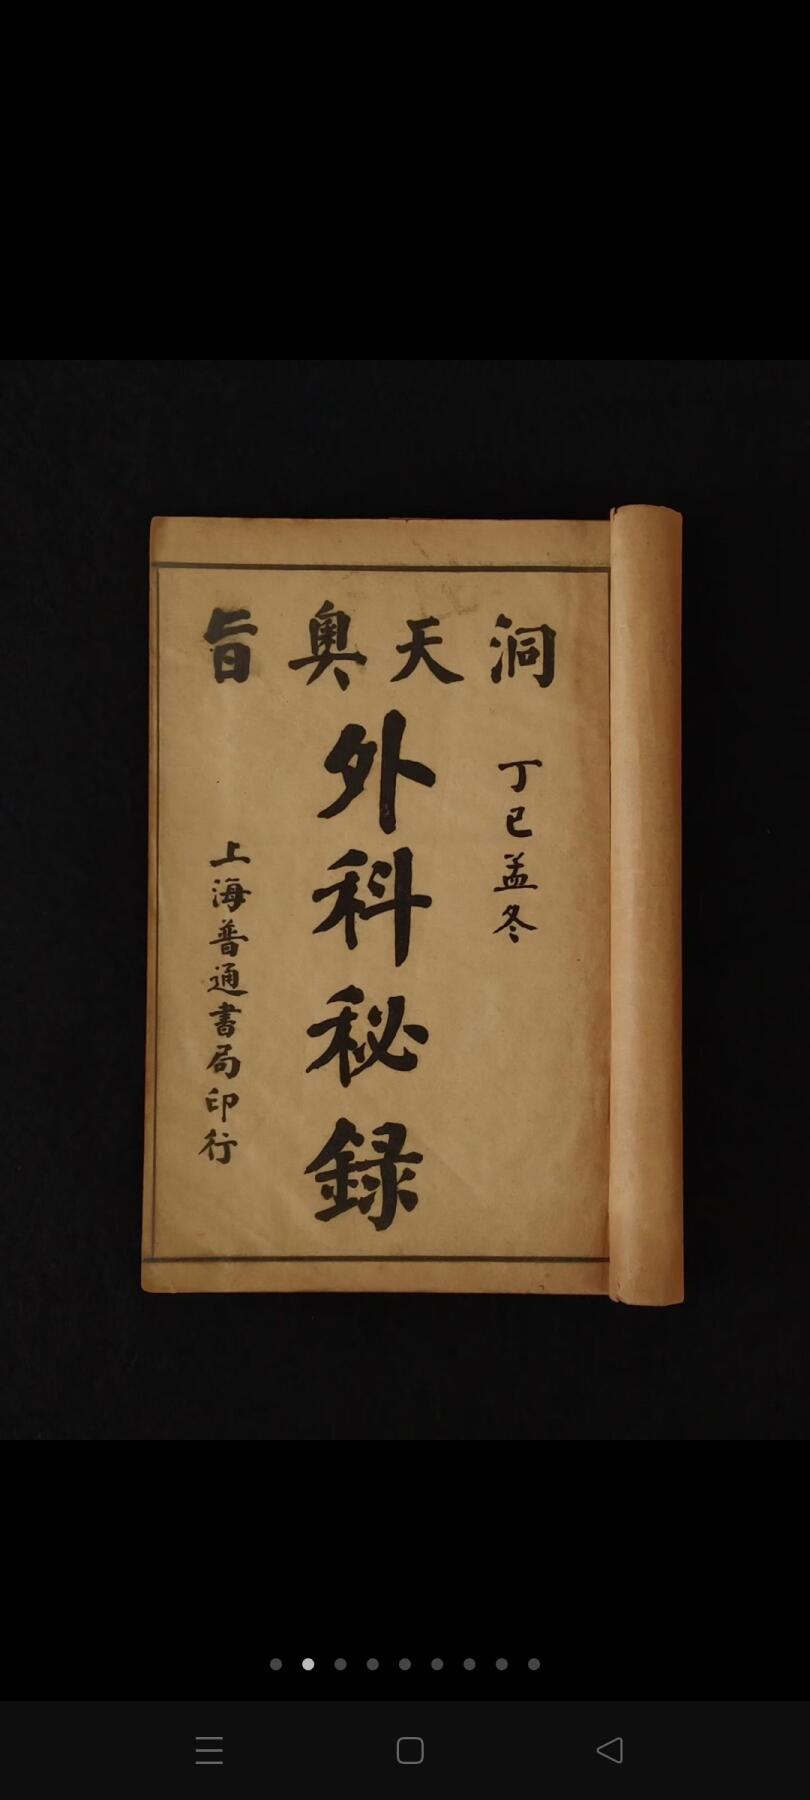 洞天奧旨
丁巳孟冬
外科秘録
上海普通書局印行